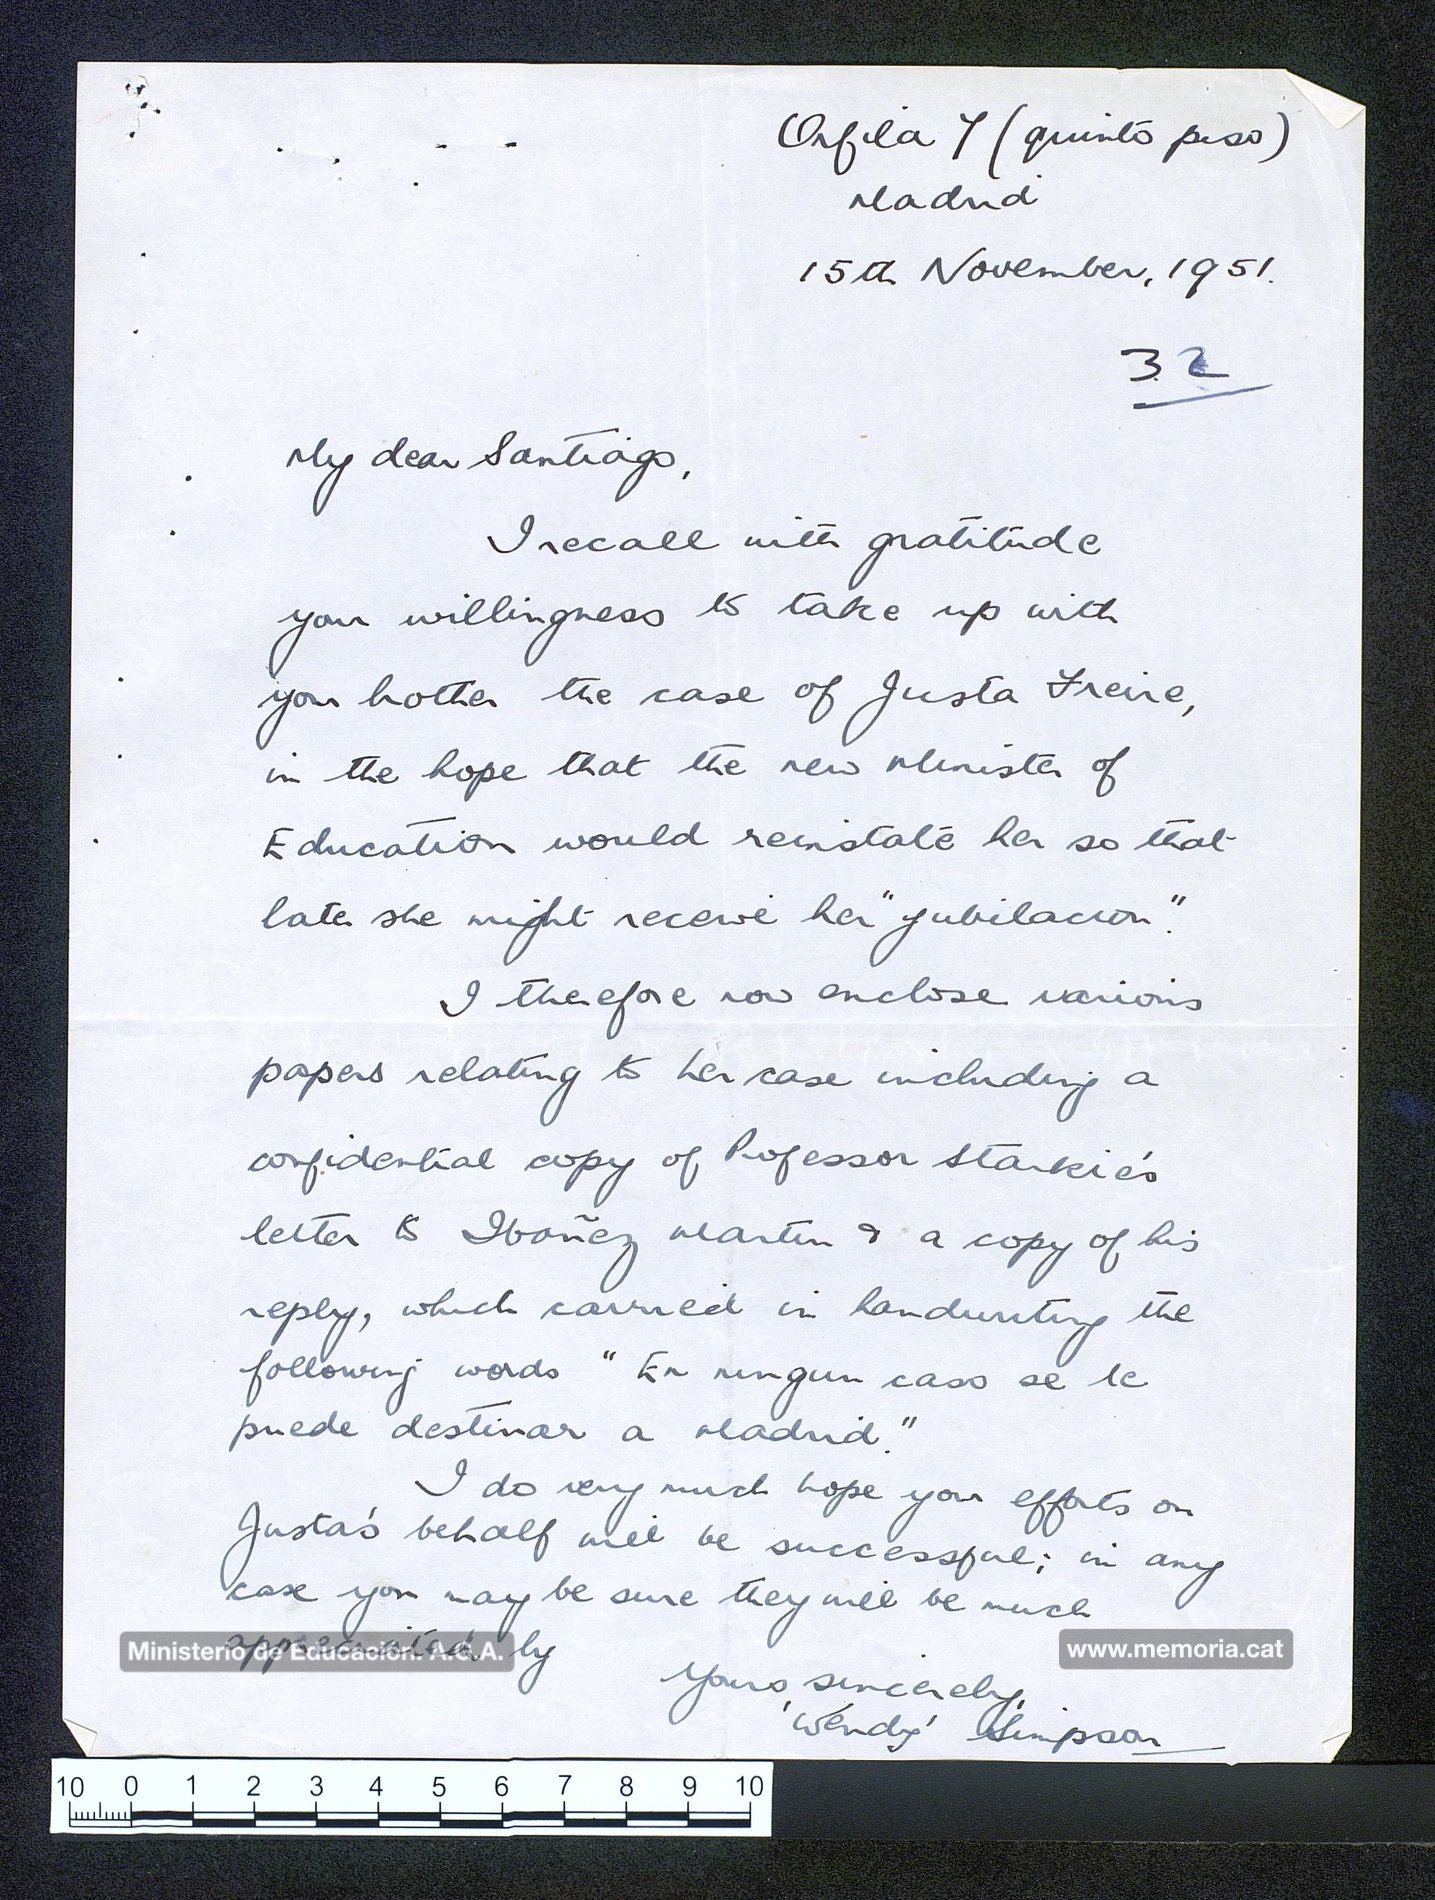 Orfila 7 (quinto piso)
Madrid
15th November, 1951.
32
My dear Santiago,
I recall with gratitude
your willingness to take up with
your brother the case of Justa Freire,
in the hope that the new Minister of
Education would reinstate her so that
later she might receive her "jubilacion".
I therefore now enclose various
papers relating to her case including a
confidential copy of Professor Starkie's
letter to Ibañez Martin & a copy of his
reply, which carried in handwriting the
following words "En ningun caso se le
puede destinar a Madrid."
I do very much hope your efforts on
Justa's behalf will be successful; in any
case you may be sure they will be much
appreciated by
Ministerio de Educación. A.G.A.
www.memoria.cat
Yours sincerely,
'Wendy' Simpson
10 0 1 2 3 4 5 6 7 8 9 10